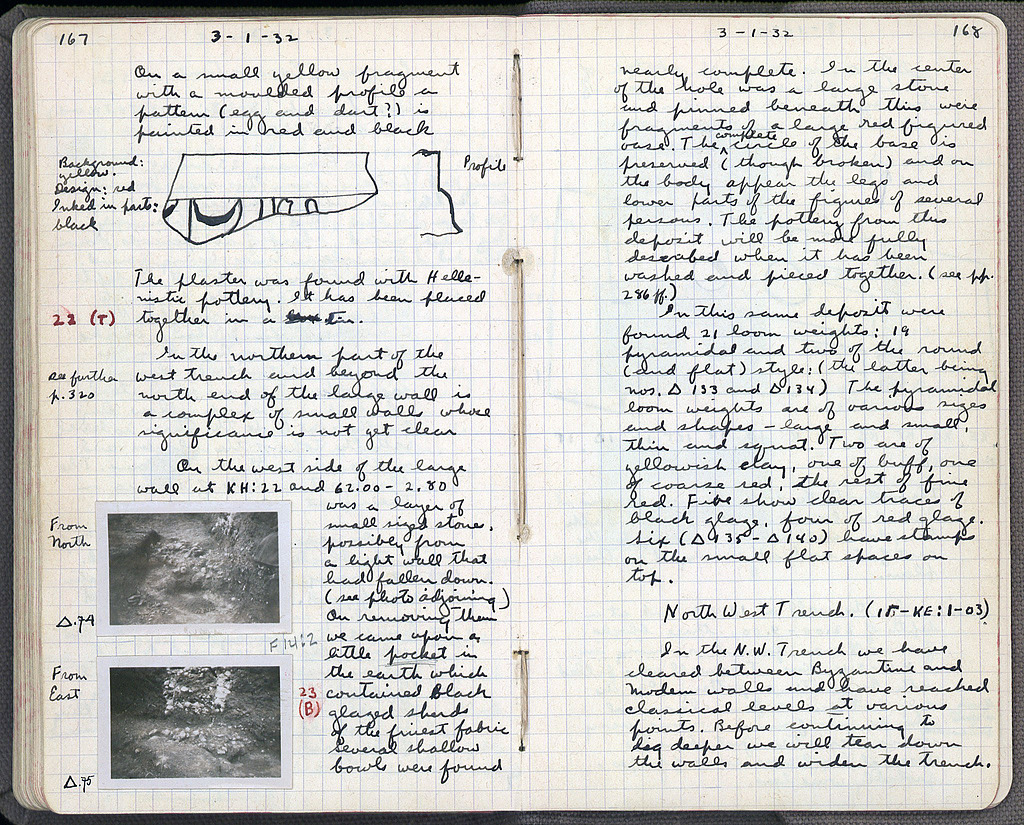 167
3-1-32
On a small yellow fragment
with a moulded profile a
pattern (egg and dart?) is
painted in red and black
Background:
yellow.
Design: red
Inked in parts:
black
Profile
The plaster was found with Helle-
nistic pottery. It has been placed
22 (T)
together in a tin.
In the northern part of the
see further
p. 320
west trench and beyond the
north end of the large wall is
a complex of small walls whose
significance is not yet clear
On the west side of the large
wall at KH:22 and 62.00 - 2.80
was a layer of
small sized stone,
possibly from
a light wall that
had fallen down.
(see photo adjoining)
On removing them
we came upon a
little pocket in
the earth which
contained Black
glazed sherds
of the finest fabric
Several shallow
bowls were found
From
North
Δ.74
F 1462
From
East
23
(B)
Δ.75
3-1-32
168
nearly complete. In the center
of the hole was a large stone
and pinned beneath this were
fragments of a large red figured
vase. The complete circle of the base is
preserved (though broken) and on
the body appear the legs and
lower parts of the figures of several
persons. The pottery from this
deposit will be more fully
described when it has been
washed and pieced together. (see pp.
286 ff.)
In this same deposit were
found 21 loom weights: 19
pyramidal and two of the round
(and flat) style: (the latter being
nos. Δ 133 and Δ 134) The pyramidal
loom weights are of various sizes
and shapes – large and small,
thin and squat. Two are of
yellowish clay, one of buff, one
of coarse red, the rest of fine
red. Five show clear traces of
black glaze, four of red glaze.
Six (Δ 135 - Δ 140) have stamps
on the small flat spaces on
top.
North West Trench. (15-KE:1-03)
In the N.W. Trench we have
cleared between Byzantine and
modern walls and have reached
classical levels at various
points. Before continuing to
dig deeper we will tear down
the walls and widen the trench.